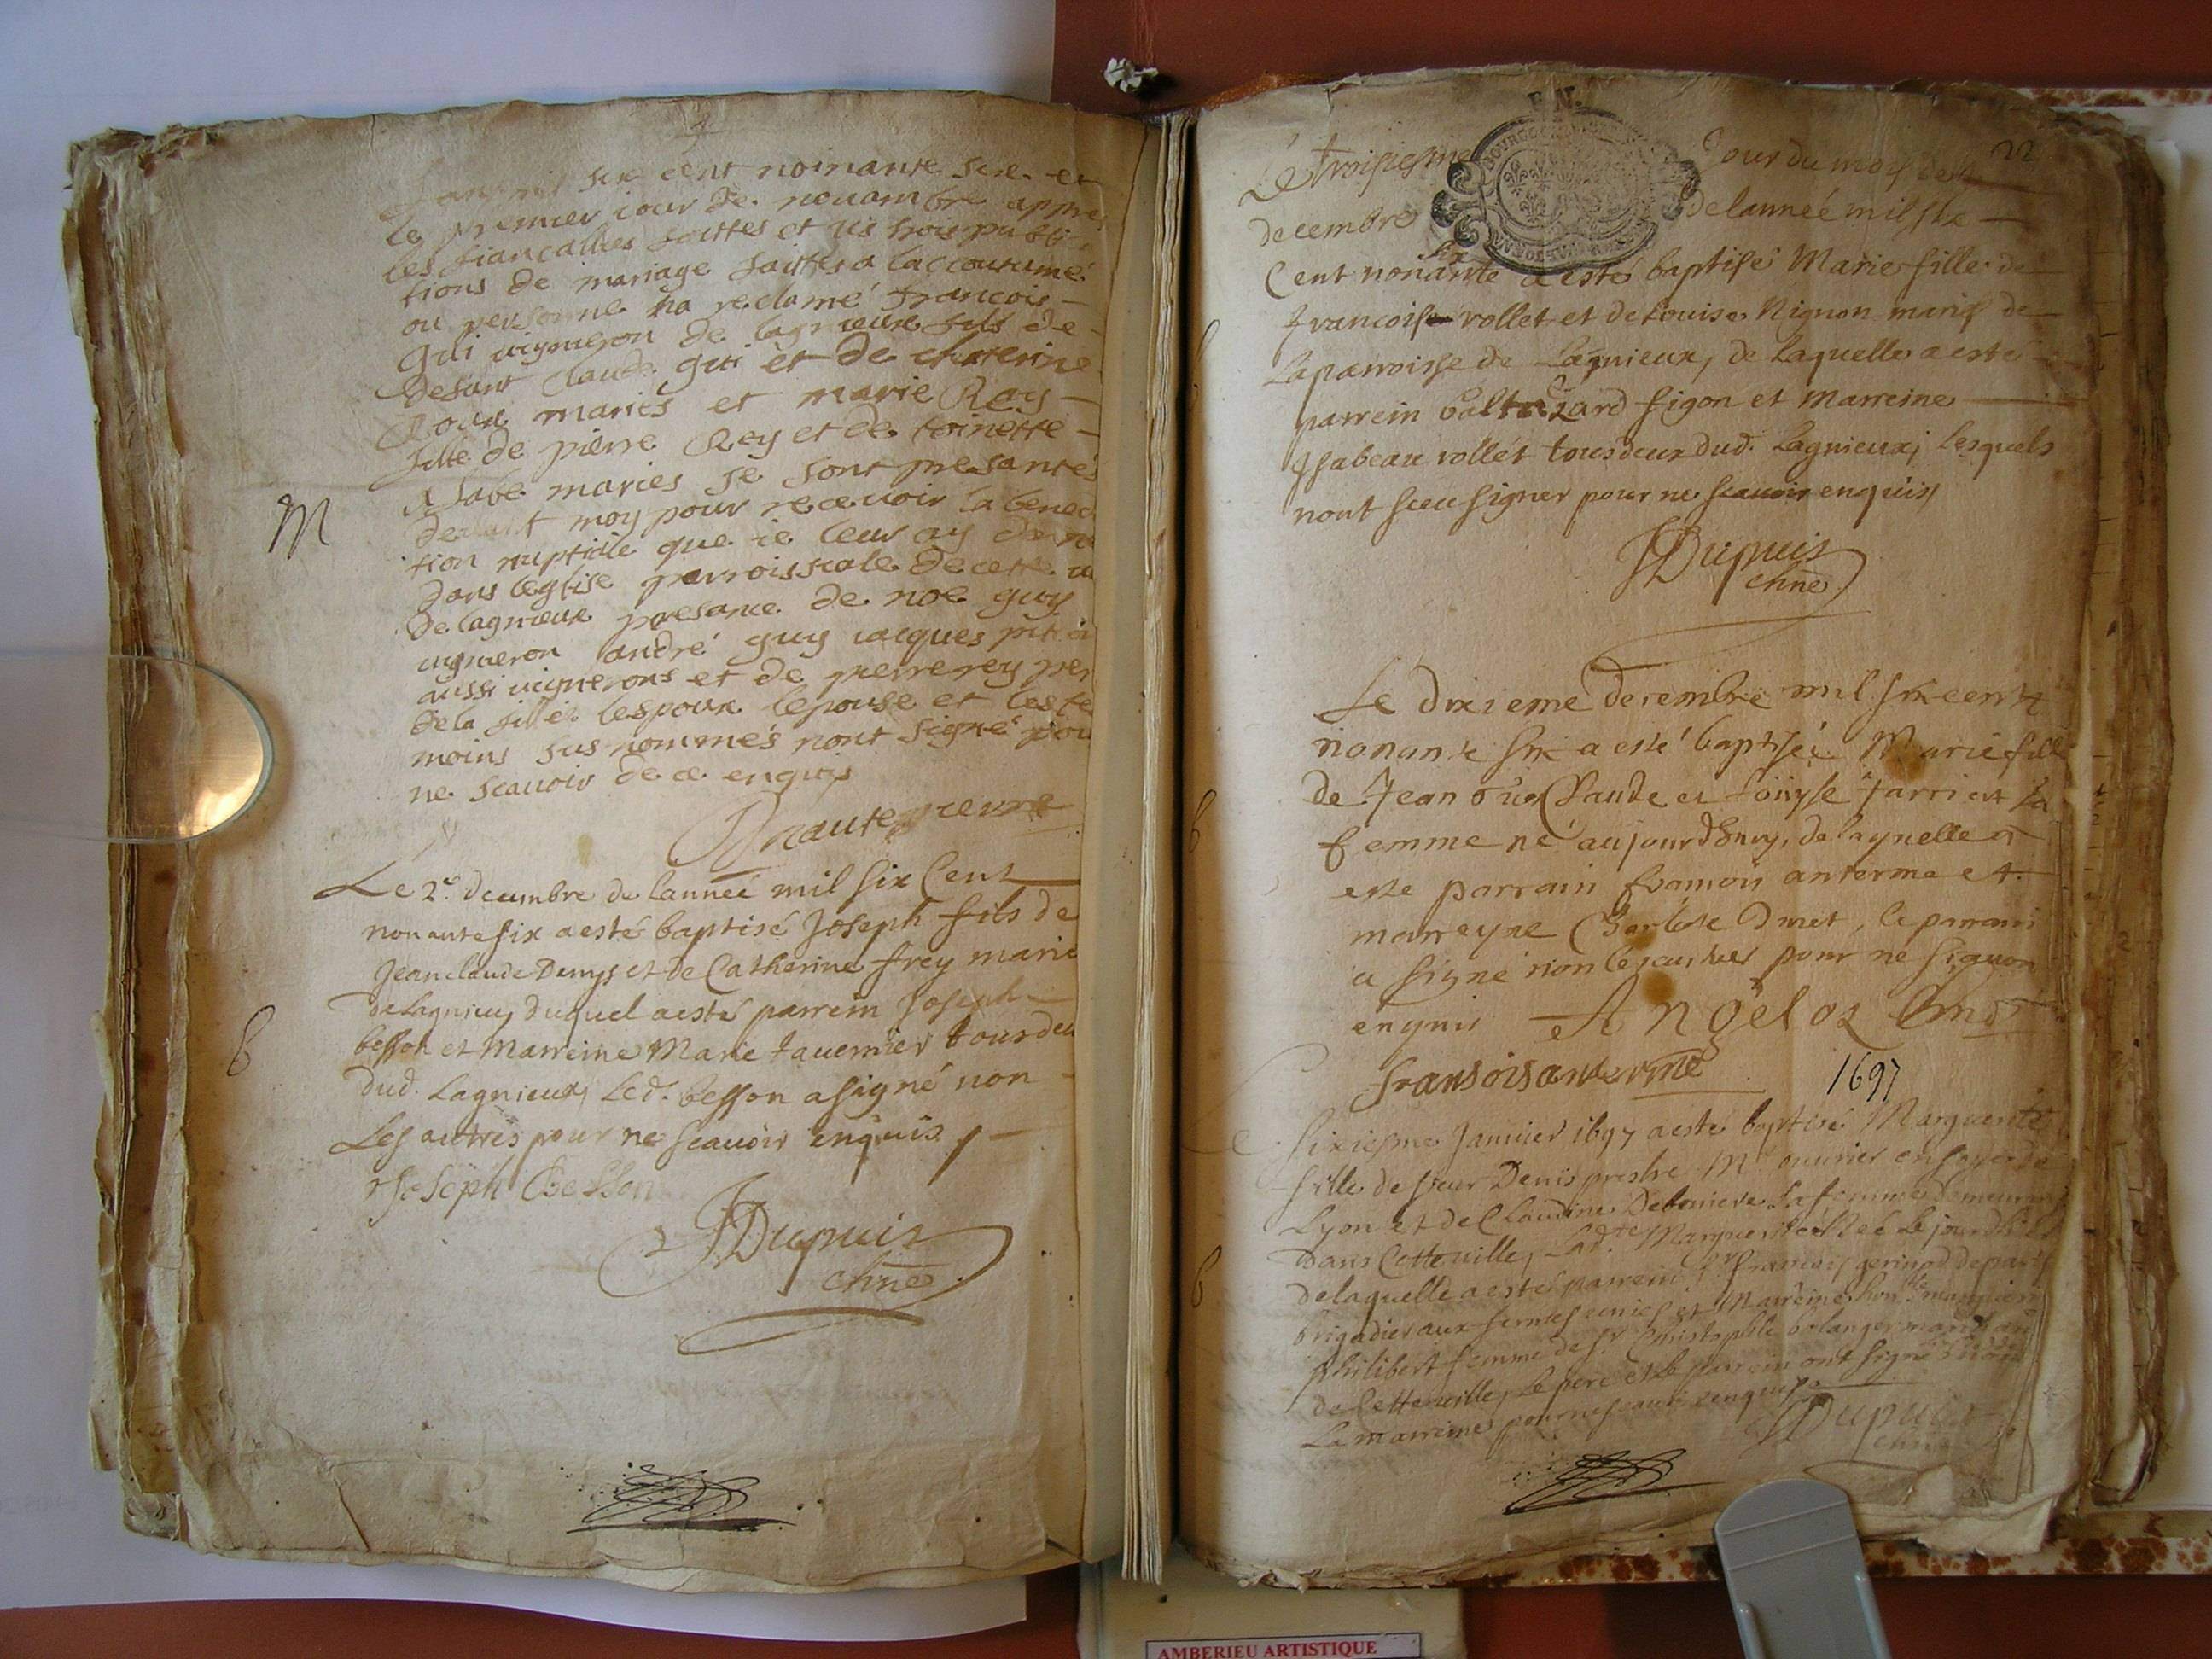 Lan mil six cent noinante six et
le premier iour de nouambre appres
les fiancallies faittes et les trois publica
tions de mariage faittes a laccoutumé
ou personne na reclamé francois
gui uigneron de lagnieux fils de
defunt Claude gui et de chaterine
Roux mariés et marie Rey
fille de pierre Rey et de toinette
mariés se sont presantés
deuant moy pour receuoir la bened
tion nuptiale que ie leur ay donné
dans leglise parroissiale de cette
de lagnieux presance de noe guy
uigneron andré guy iacques
aussi uignerons et de pierre rey per
de la fille lespoux lepouse et les te
moins sus nommés nont signé pou
ne scauoir de ce enquis
M
Dhautepierre
Le 2e. decembre de lanneé mil six Cent
nonante six a esté baptisé Joseph fils de
Jean claude Denys et de Catherine frey marié
de Lagnieu, duquel a esté parrein Joseph
besson et Marreine Marie tauernier tous deu
dud. Lagnieux, Led. besson a signé non
Les autres pour ne scauoir enquis
b
Joseph Besson
JDupuis
chne
22
Le troisiesme Jour du moys de
decembre de lanneé mil six
Cent nonante six a esté baptiseé Marie fille de
francois vollet et de Louise Nignon mariés de
La parroisse de Lagnieux, de Laquelle a esté
parrein baltazard figon et Marreine
ysabeau vollet tous deux dud. Lagnieux, Lesquels
nont sceu signer pour ne scauoir enquis
JDupuis
chne
Le dixieme decembre mil six cent
nonante six a esté baptisée Marie fille
de Jean Claude et Louyse sa
femme né aujourdhuy, de laquelle a
esté parrain françois anterme et
marreyne le parrain
a signé non les autres pour ne
enquis
b
françois anterme
1697
Le sixiesme Januier 1697 a esté baptiseé Marguerite
fille de sieur Denis prestre Me ouurier en soye de
Lyon et de Claudine sa femme demeurant
dans Cette uille, Lad.te Marguerite Neé Le jourdhier
de laquelle a esté parrein Sr francois de paris
brigadier aux fermes unies et Marreine
philibert femme de Sr. Christophle bolanger marchand
de Cette uille, Le pere et Le parrein ont signé non
La marreine pour ne scauoir enquis
b
JDupuis
chne
AMBERIEU ARTISTIQUE